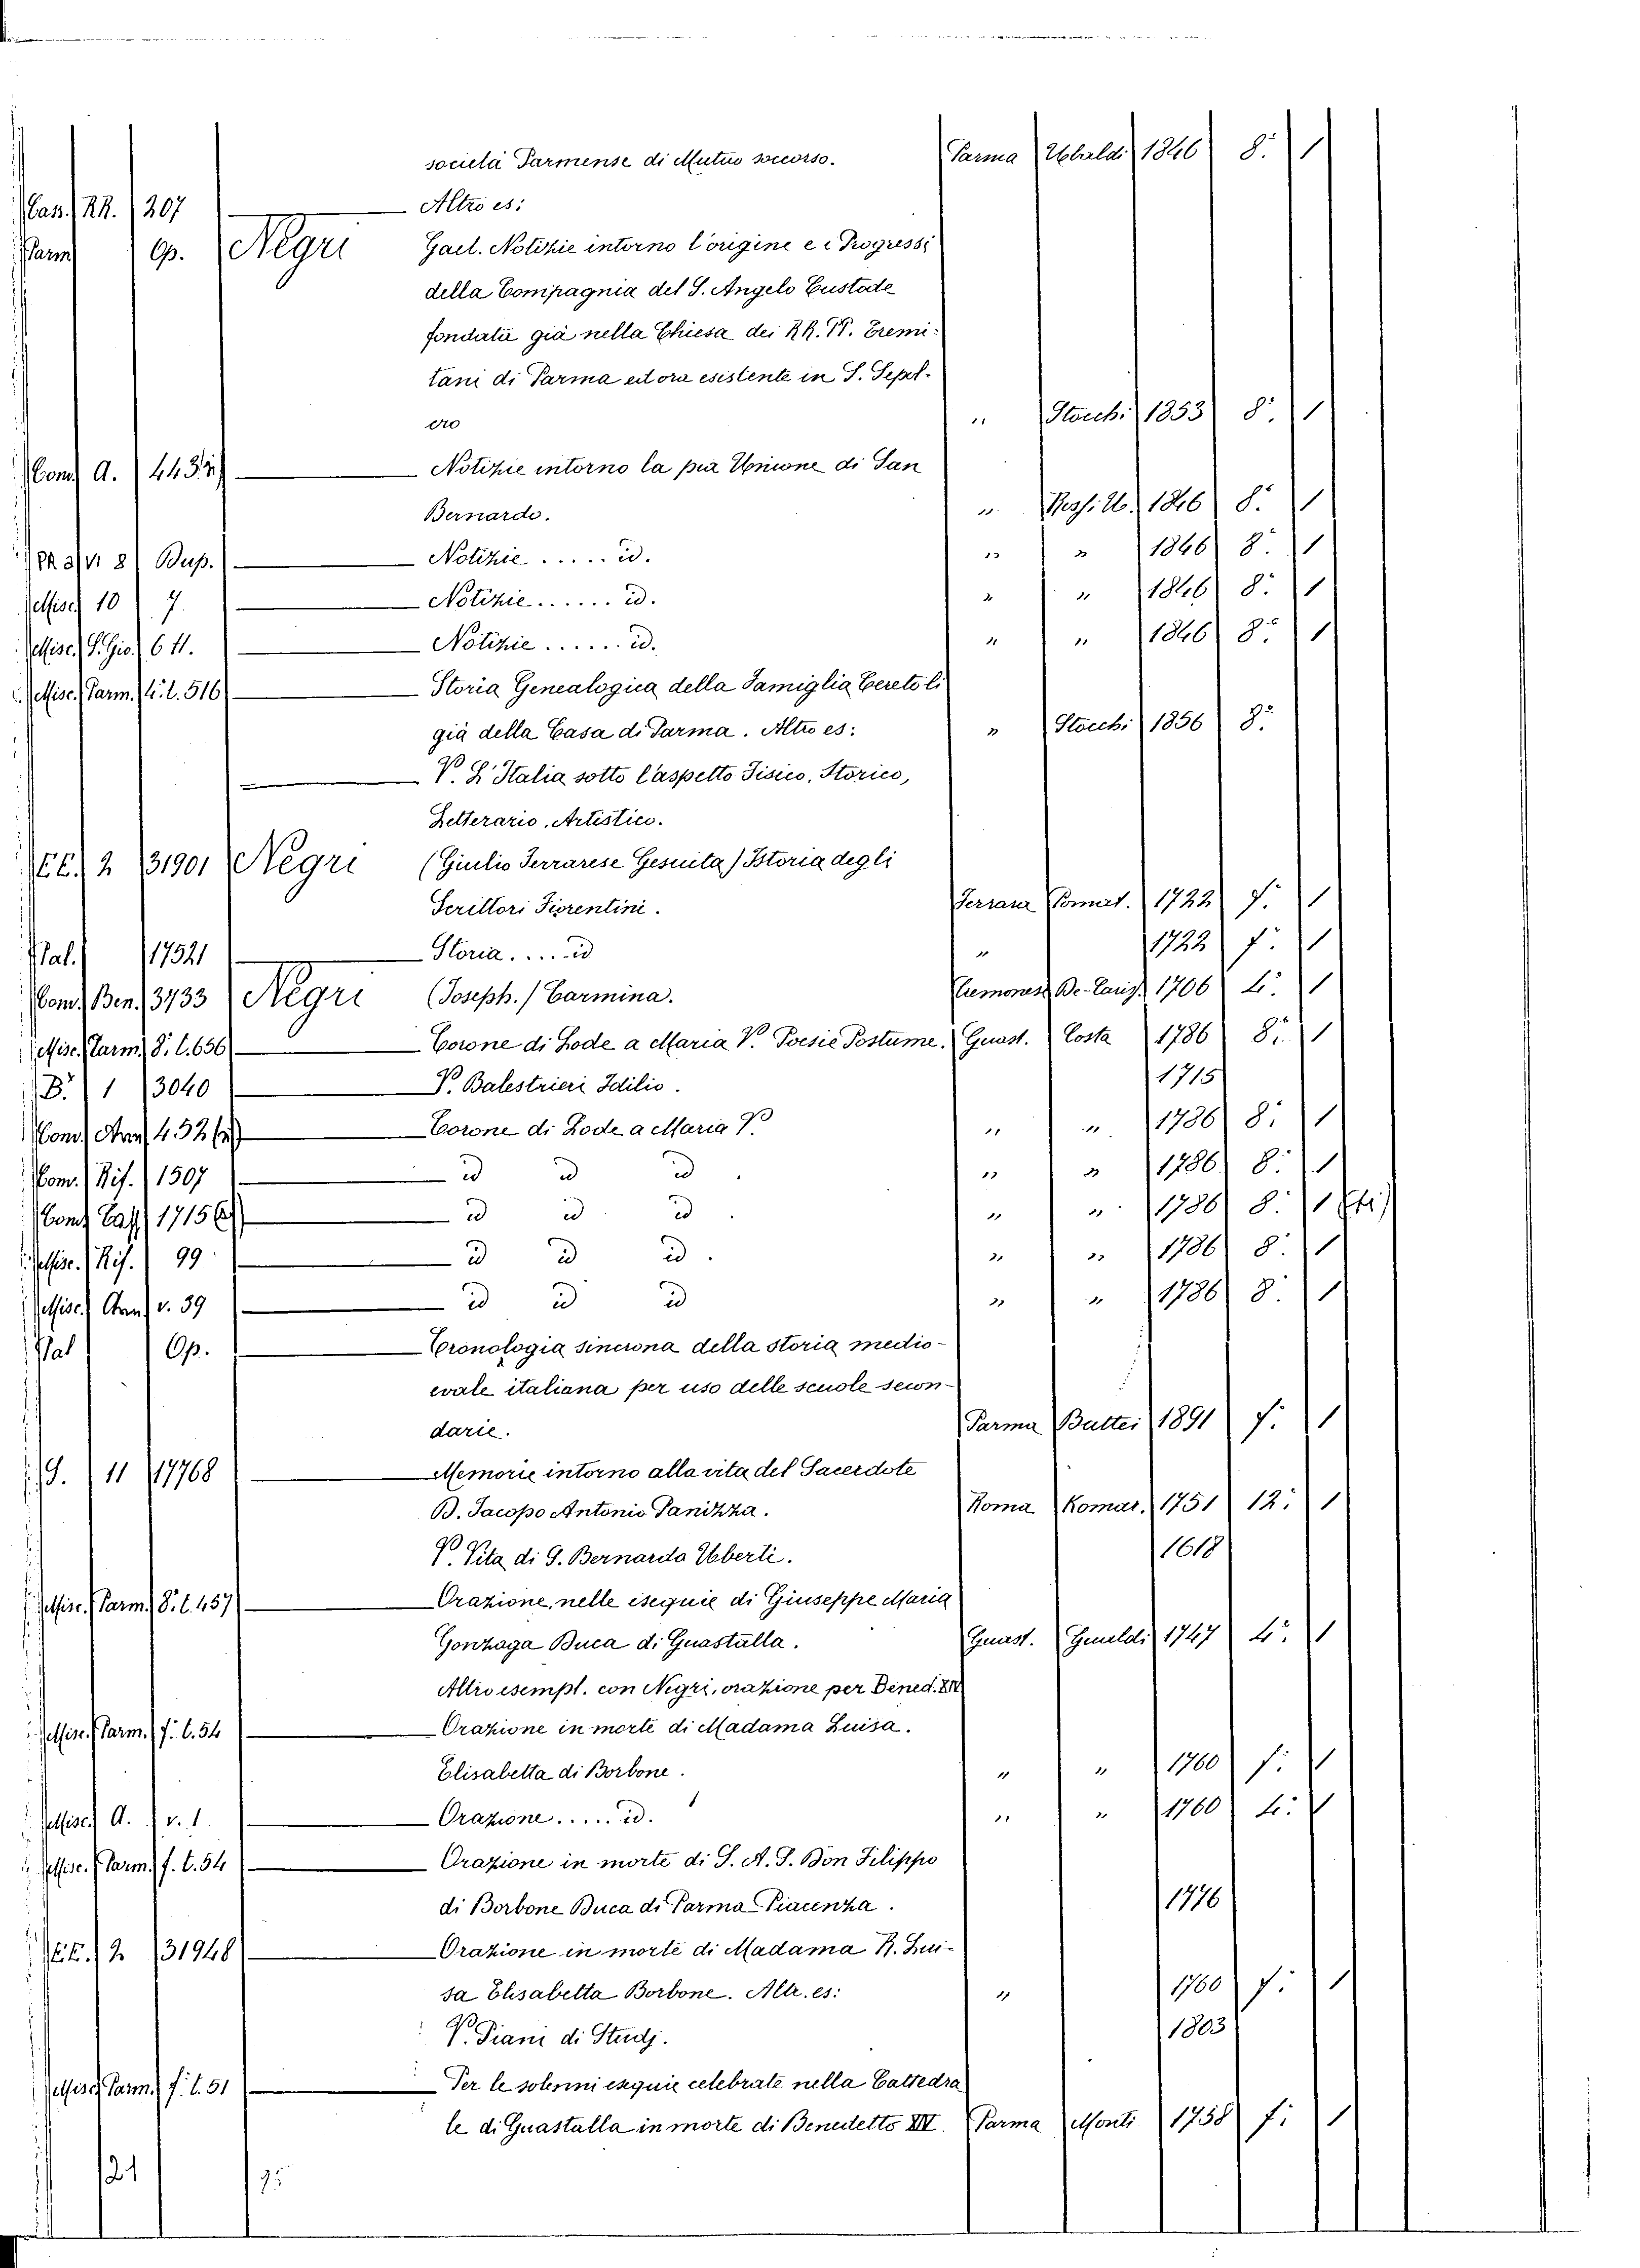 società Parmense di Mutuo soccorso. Parma Ubaldi 1846 8. 1
Cas. RR. 207 Altro es:
Parm Op. Negri Gaet. Notizie intorno l'origine e i Progressi
della Compagnia del S. Angelo Custode
fondata già nella Chiesa dei RR. PP. Eremi-
tani di Parma ed ora esistente in S. Sepol-
cro " Stocchi 1853 8. 1
Com A. 4434 Notizie intorno la pia Unione di San
Bernardo. " 1846 8. 1
RR 3/VI 8 Dup. Notizie ..... id. " " 1846 8. 1
Misc. 10 7. Notizie ...... id. " " 1846 8. 1
Misc. S. Gio. 6 11. Notizie ...... id. " " 1846 8. 1
Misc. Parm. 4. t. 516 Storia Genealogica della Famiglia Ceretoli
già della Casa di Parma. Altro es: " Stocchi 1856 8.
V. L'Italia sotto l'aspetto Fisico, Storico,
Letterario, Artistico.
EE. 2 31901 Negri (Giulio Ferrarese Gesuita) Istoria degli
Scrittori Fiorentini. Ferrara Pomat. 1722 f. 1
Pal. 17521 Storia ..... id " 1722 f. 1
Com. Ben. 3733 Negri (Joseph.) Carmina. Cremones 1706 4. 1
Misc. Parm. 8. t. 656 Corone di Lode a Maria V. Poesie Postume. Guast. Costa 1786 8. 1
B. 1 3040 V. Balestrieri Idilio. 1715
Com. Ann. 432 Corone di Lode a Maria V. " " 1786 8. 1
Com. Rif. 1507 id id id. " " 1786 8. 1
Com. Cass 1715 id id id. " " 1786 8. 1
Misc. Rif. 99 id id id. " " 1786 8. 1
Misc. Ann v. 39 id id id " " 1786 8. 1
Pal Op. Cronologia sincrona della storia medio-
evale italiana per uso delle scuole secon-
darie. Parma Battei 1891 f. 1
S. 11 17768 Memorie intorno alla vita del Sacerdote
D. Jacopo Antonio Panizza. Roma Komar. 1751 12. 1
V. Vita di S. Bernardo Uberti. 1618
Misc. Parm. 8. t. 457 Orazione, nelle esequie di Giuseppe Maria
Gonzaga Duca di Guastalla. Guast. 1747 4. 1
Altro esempl. con Negri, orazione per Bened. XIV
Misc. Parm. f. t. 54 Orazione in morte di Madama Luisa.
Elisabetta di Borbone. " " 1760 f. 1
Misc. A. v. 1 Orazione ..... id. " " 1760 4. 1
Misc. Parm. f. t. 54 Orazione in morte di S. A. S. Don Filippo
di Borbone Duca di Parma Piacenza. 1776
EE. 2 31948 Orazione in morte di Madama R. Lui-
sa Elisabetta Borbone. Altr. es: " 1760 f. 1
V. Piani di Studj. 1803
Misc. Parm. f. t. 51 Per le solenni esequie celebrate nella Cattedra
le di Guastalla in morte di Benedetto XIV. Parma Monti 1758 f. 1
21 95